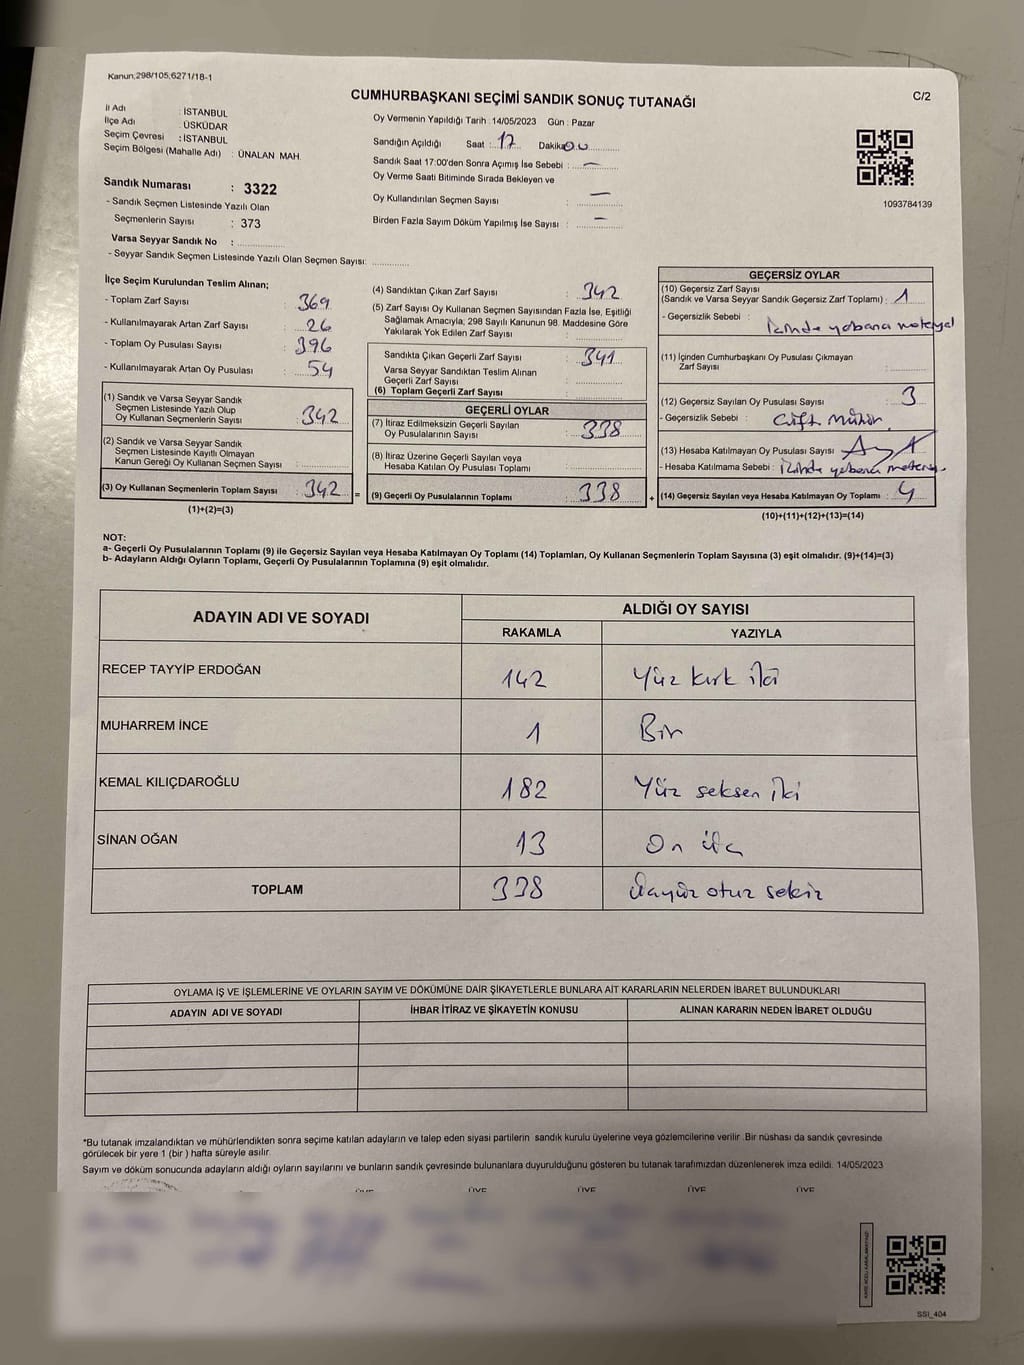 Kanun,298/105,6271/18-1
C/2
CUMHURBAŞKANI SEÇİMİ SANDIK SONUÇ TUTANAĞI
İl Adı : İSTANBUL
İlçe Adı : ÜSKÜDAR
Seçim Çevresi : İSTANBUL
Seçim Bölgesi (Mahalle Adı) : ÜNALAN MAH.
Sandık Numarası : 3322
- Sandık Seçmen Listesinde Yazılı Olan
Seçmenlerin Sayısı : 373
Varsa Seyyar Sandık No :
- Seyyar Sandık Seçmen Listesinde Yazılı Olan Seçmen Sayısı:
Oy Vermenin Yapıldığı Tarih : 14/05/2023 Gün : Pazar
Sandığın Açıldığı Saat : 17 Dakika 00
Sandık Saat 17:00'den Sonra Açımış İse Sebebi : —
Oy Verme Saati Bitiminde Sırada Bekleyen ve
Oy Kullandırılan Seçmen Sayısı : —
Birden Fazla Sayım Döküm Yapılmış İse Sayısı : —
1093784139
İlçe Seçim Kurulundan Teslim Alınan;
- Toplam Zarf Sayısı : 369
- Kullanılmayarak Artan Zarf Sayısı : 26
- Toplam Oy Pusulası Sayısı : 396
- Kullanılmayarak Artan Oy Pusulası : 54
(1) Sandık ve Varsa Seyyar Sandık
Seçmen Listesinde Yazılı Olup
Oy Kullanan Seçmenlerin Sayısı : 342
(2) Sandık ve Varsa Seyyar Sandık
Seçmen Listesinde Kayıtlı Olmayan
Kanun Gereği Oy Kullanan Seçmen Sayısı :
(3) Oy Kullanan Seçmenlerin Toplam Sayısı : 342 =
(1)+(2)=(3)
(4) Sandıktan Çıkan Zarf Sayısı : 342
(5) Zarf Sayısı Oy Kullanan Seçmen Sayısından Fazla İse, Eşitliği
Sağlamak Amacıyla, 298 Sayılı Kanunun 98. Maddesine Göre
Yakılarak Yok Edilen Zarf Sayısı :
Sandıkta Çıkan Geçerli Zarf Sayısı : 341
Varsa Seyyar Sandıktan Teslim Alınan
Geçerli Zarf Sayısı :
(6) Toplam Geçerli Zarf Sayısı :
GEÇERLİ OYLAR
(7) İtiraz Edilmeksizin Geçerli Sayılan
Oy Pusulalarının Sayısı : 338
(8) İtiraz Üzerine Geçerli Sayılan veya
Hesaba Katılan Oy Pusulası Toplamı :
(9) Geçerli Oy Pusulalarının Toplamı : 338 +
GEÇERSİZ OYLAR
(10) Geçersiz Zarf Sayısı
(Sandık ve Varsa Seyyar Sandık Geçersiz Zarf Toplamı) : 1
- Geçersizlik Sebebi : İçinde yabancı materyal
(11) İçinden Cumhurbaşkanı Oy Pusulası Çıkmayan
Zarf Sayısı :
(12) Geçersiz Sayılan Oy Pusulası Sayısı : 3
- Geçersizlik Sebebi : Çift Mühür
(13) Hesaba Katılmayan Oy Pusulası Sayısı :
- Hesaba Katılmama Sebebi : İçinde yabancı
(14) Geçersiz Sayılan veya Hesaba Katılmayan Oy Toplamı : 4
(10)+(11)+(12)+(13)=(14)
NOT:
a- Geçerli Oy Pusulalarının Toplamı (9) ile Geçersiz Sayılan veya Hesaba Katılmayan Oy Toplamı (14) Toplamları, Oy Kullanan Seçmenlerin Toplam Sayısına (3) eşit olmalıdır. (9)+(14)=(3)
b- Adayların Aldığı Oyların Toplamı, Geçerli Oy Pusulalarının Toplamına (9) eşit olmalıdır.
ADAYIN ADI VE SOYADI ALDIĞI OY SAYISI
RAKAMLA YAZIYLA
RECEP TAYYİP ERDOĞAN 142 Yüz kırk iki
MUHARREM İNCE 1 Bir
KEMAL KILIÇDAROĞLU 182 Yüz seksen iki
SİNAN OĞAN 13 On üç
TOPLAM 338 üçyüz otuz sekiz
OYLAMA İŞ VE İŞLEMLERİNE VE OYLARIN SAYIM VE DÖKÜMÜNE DAİR ŞİKAYETLERLE BUNLARA AİT KARARLARIN NELERDEN İBARET BULUNDUKLARI
ADAYIN ADI VE SOYADI İHBAR İTİRAZ VE ŞİKAYETİN KONUSU ALINAN KARARIN NEDEN İBARET OLDUĞU
*Bu tutanak imzalandıktan ve mühürlendikten sonra seçime katılan adayların ve talep eden siyasi partilerin sandık kurulu üyelerine veya gözlemcilerine verilir .Bir nüshası da sandık çevresinde
görülecek bir yere 1 (bir ) hafta süreyle asılır.
Sayım ve döküm sonucunda adayların aldığı oyların sayılarını ve bunların sandık çevresinde bulunanlara duyurulduğunu gösteren bu tutanak tarafımızdan düzenlenerek imza edildi. 14/05/2023
ÜYE ÜYE ÜYE ÜYE ÜYE
SSI_404